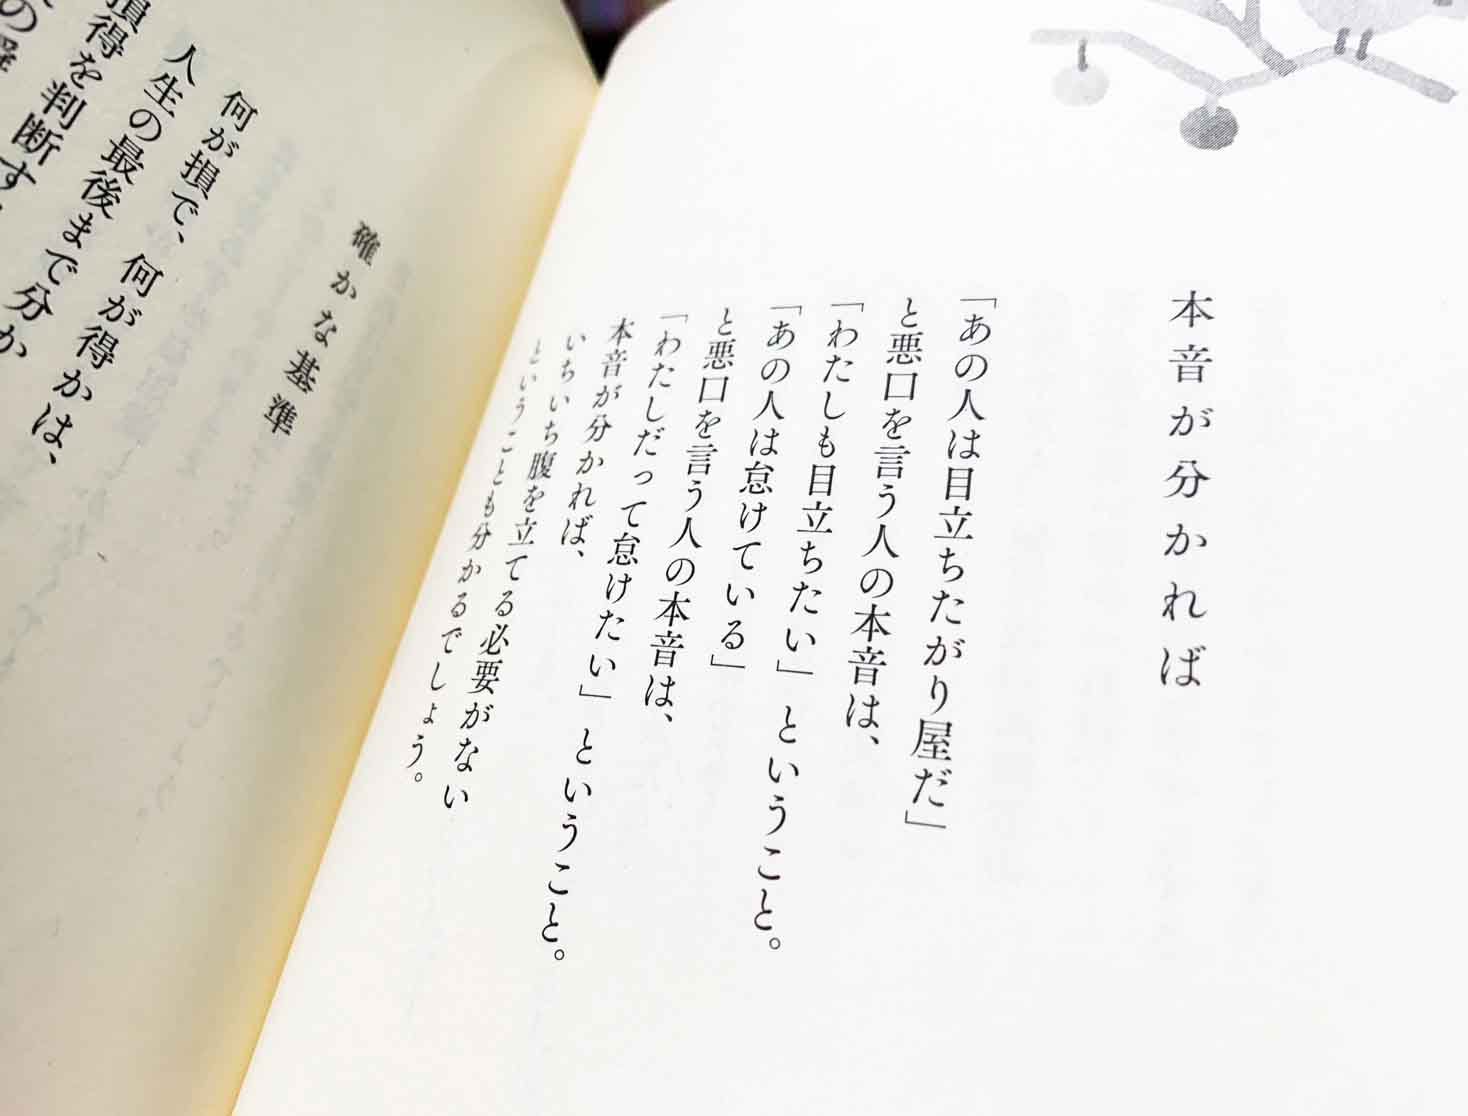 本音が分かれば
「あの人は目立ちたがり屋だ」
と悪口を言う人の本音は、
「わたしも目立ちたい」ということ。
「あの人は怠けている」
と悪口を言う人の本音は、
「わたしだって怠けたい」ということ。
本音が分かれば、
いちいち腹を立てる必要がない
ということも分かるでしょう。
確かな基準
何が損で、何が得かは、
人生の最後まで分か
損得を判断す